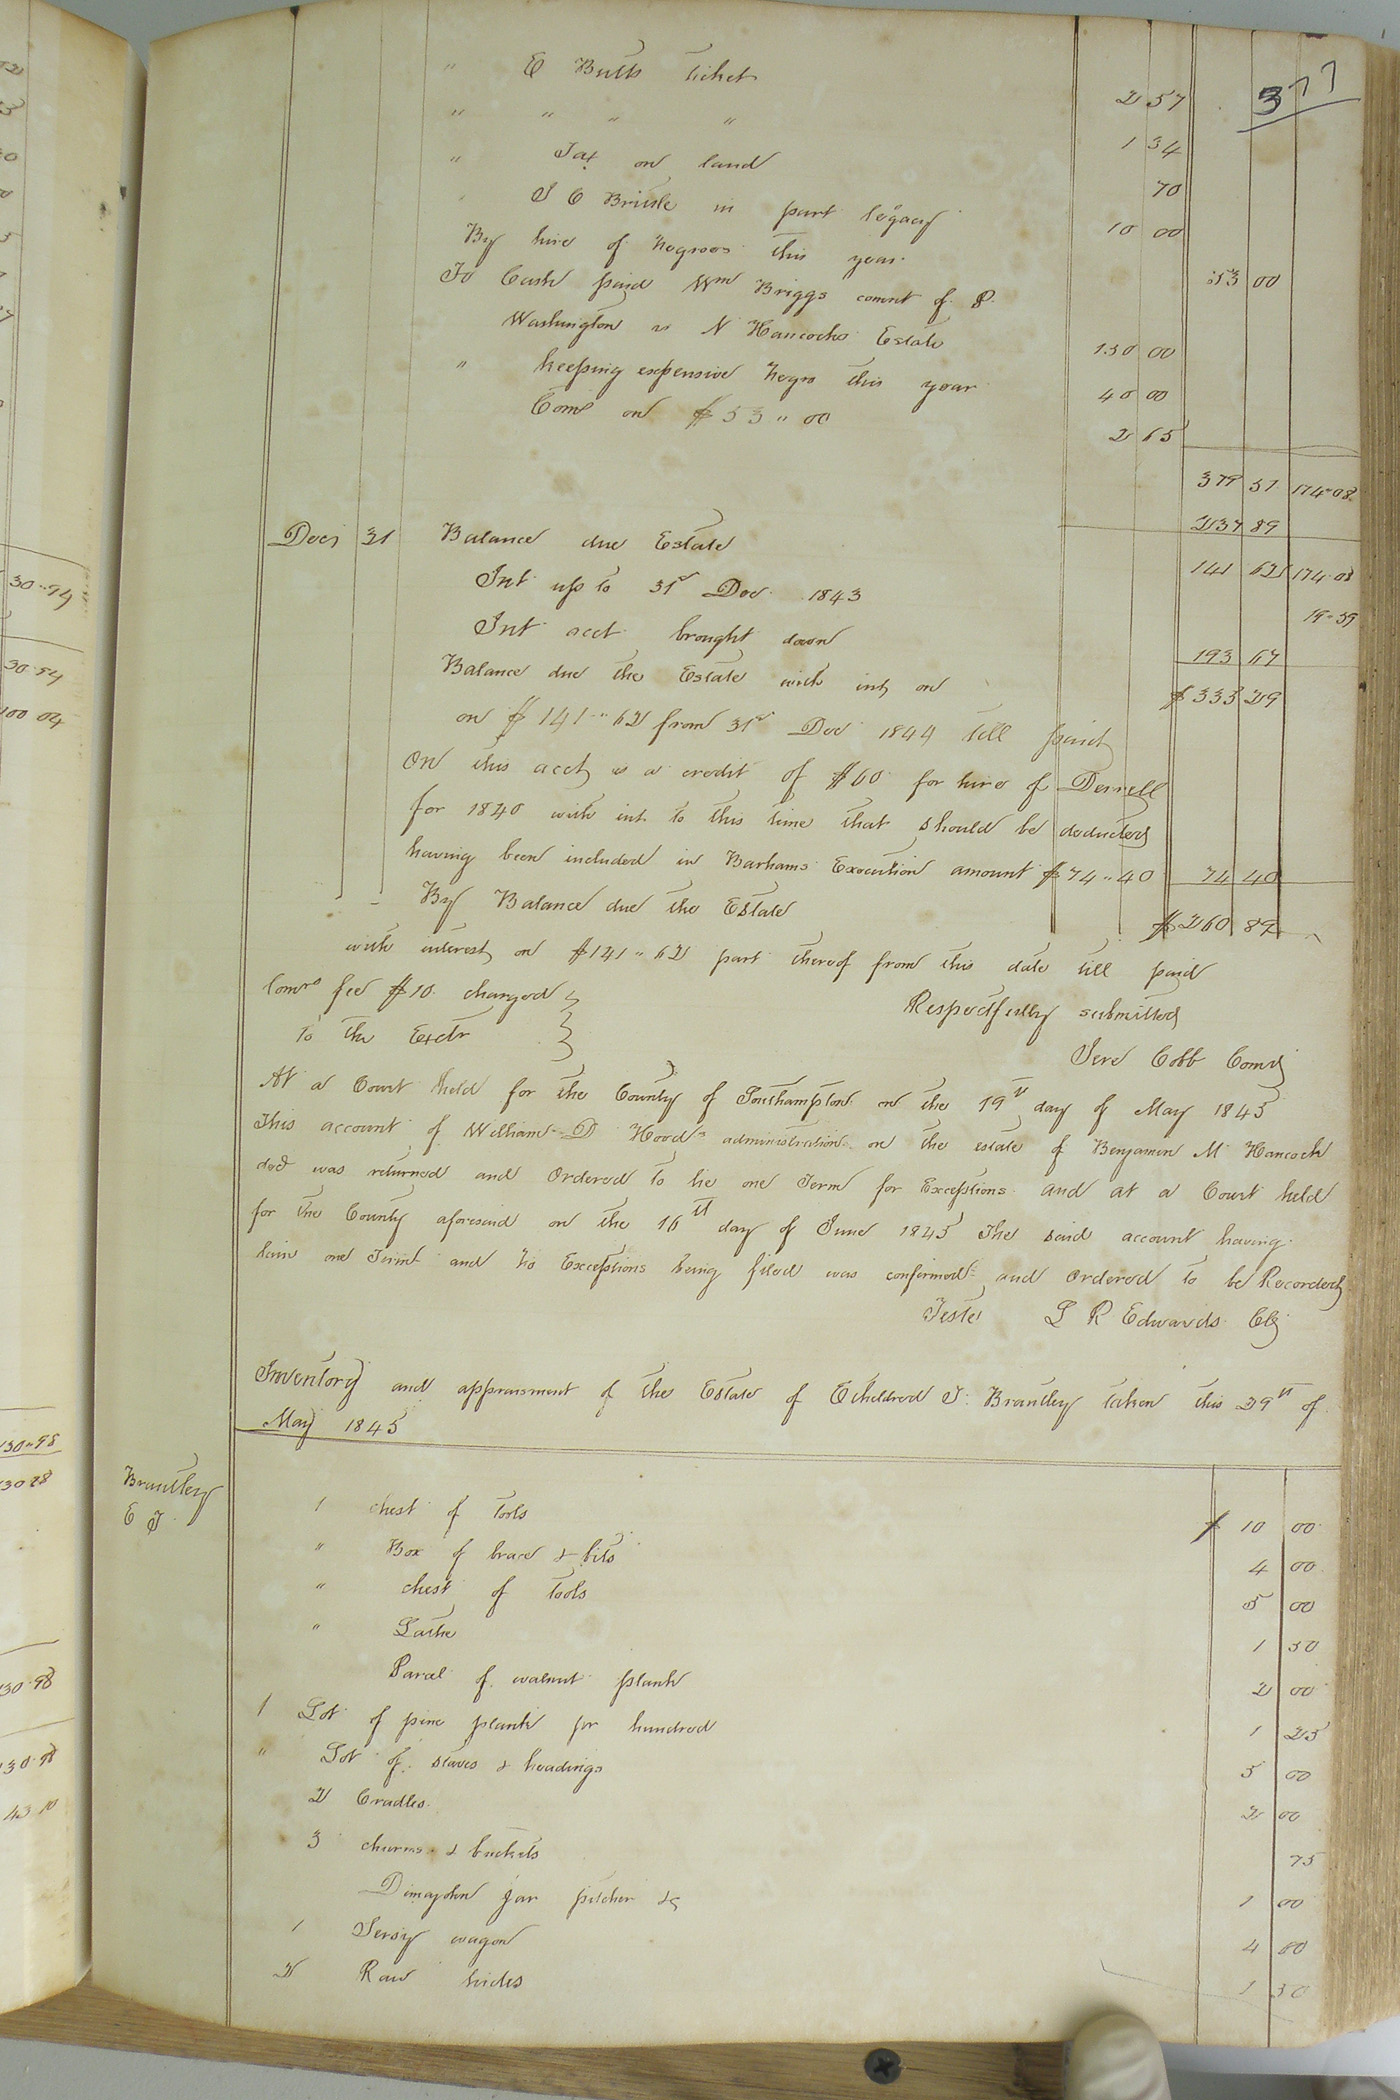 377
" E Butts ticket 2 57
" " " " 1 34
" Tax on land 70
J C Bristle in part legacy 10 00
By hire of negroes this year 53 00
To Cash paid Wm Briggs comnt of P.
Washington vs N Hancocks Estate 130 00
" keeping expensive negro this year 40 00
Coms on $53 " 00 2 65
379 51 174"08
237 89
Decr 31 Balance due Estate 141 62 174"08
Int up to 31st Dec. 1843 19"59
Int acct brought down 193 67
Balance due the Estate with int on $335 29
on $141"62 from 31st Dec 1844 till paid
On this acct is a credit of $60 for hire of Derrell
for 1840 with int to this time that should be deducted
having been included in Barhams Execution amount $74"40 74 40
By Balance due the Estate $260 89
with interest on $141"62 part thereof from this date till paid
Comrs fee $10 charged
to the Exctr
Respectfully submitted
Jere Cobb Comr
At a Court held for the County of Southampton on the 19th day of May 1845
This account of William D Hoods administration on the estate of Benjamin M Hancock
decd was returned and Ordered to lie one Term for Exceptions and at a Court held
for the County aforesaid on the 16th day of June 1845 The said account having
lain one Term and no Exceptions being filed was confirmed and Ordered to be Recorded
Teste L R Edwards Clk
Inventory and appraisment of the Estate of Etheldred J. Brantley taken this 29th of
May 1845
Brantley
E J
1 chest of tools $10 00
" Box of brace & bits 4 00
" chest of tools 5 00
" Lathe 1 50
Parcel of walnut plank 2 00
1 Lot of pine plank pr hundred 1 25
" Lot of staves & headings 5 00
2 Cradles 2 00
3 churns & buckets 75
jar pitcher &c 1 00
1 Jersy wagon 4 00
2 Raw hides 1 50